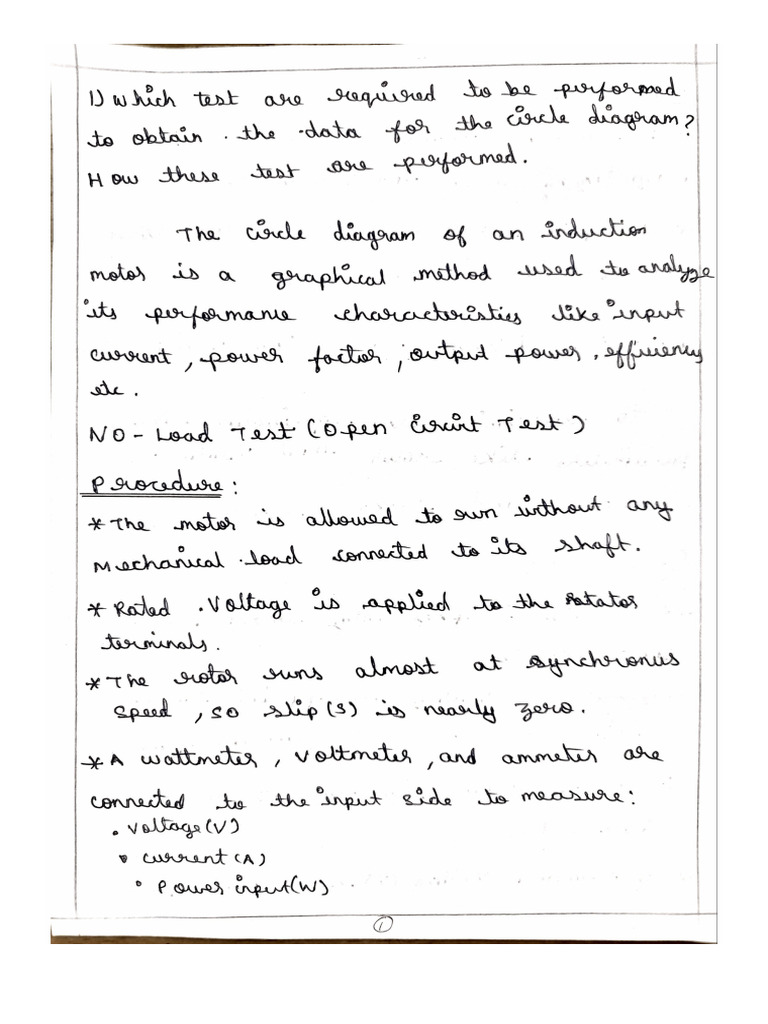 1) Which test are required to be performed
to obtain the data for the circle diagram?
How these test are performed.
The circle diagram of an induction
motor is a graphical method used to analyze
its performance characteristics like input
current, power factor, output power, efficiency
etc.
No-Load Test (Open Circuit Test)
Procedure:
* The motor is allowed to run without any
Mechanical load connected to its shaft.
* Rated Voltage is applied to the stator
terminals.
* The rotor runs almost at synchronus
speed, so slip(s) is nearly zero.
* A wattmeter, voltmeter, and ammeter are
connected to the input side to measure:
• Voltage(V)
• current(A)
• Power input(W)
1